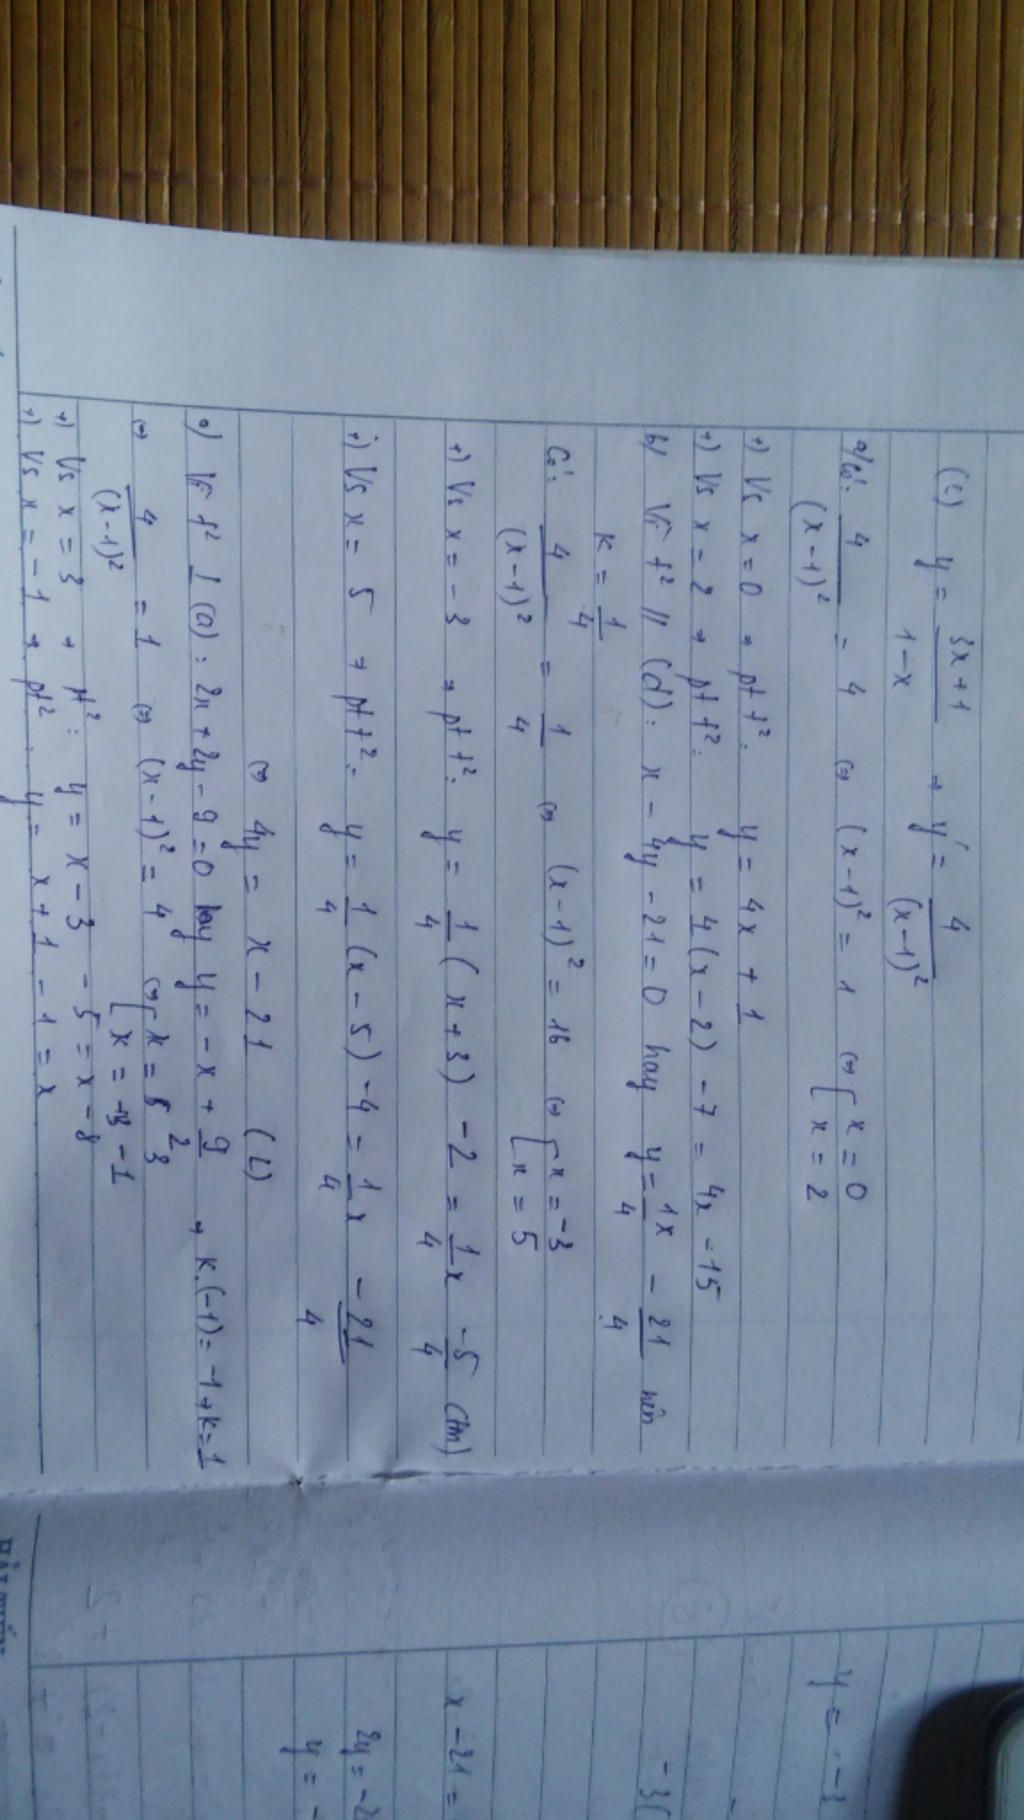 (C) y = 3x+1 / 1-x → y' = 4 / (x-1)²
a/ Có: 4 / (x-1)² = 4 ⇔ (x-1)² = 1 ⇔ [ x = 0
x = 2
+) Vs x = 0 → pt t²: y = 4x + 1
+) Vs x = 2 → pt t²: y = 4(x-2) - 7 = 4x - 15
b/ Vì t² // (d): x - 4y - 21 = 0 hay y = 1/4 x - 21/4 nên
K = 1/4
Có: 4 / (x-1)² = 1/4 ⇔ (x-1)² = 16 ⇔ [ x = -3
x = 5
+) Vs x = -3 → pt t²: y = 1/4 (x+3) - 2 = 1/4 x - 5/4 (tm)
+) Vs x = 5 → pt t²: y = 1/4 (x-5) - 4 = 1/4 x - 21/4
⇔ 4y = x - 21 (L)
c) Vì t² ⊥ (a): 2x + 2y - 9 = 0 hay y = -x + 9/2 → K.(-1) = -1 → K = 1
⇔ 4 / (x-1)² = 1 ⇔ (x-1)² = 4 ⇔ [ x = 3
x = -1
+) Vs x = 3 → pt²: y = x - 3 - 5 = x - 8
+) Vs x = -1 → pt². y = x + 1 - 1 = x
y = -3
-3(
x - 21 =
2y = -2
y = -